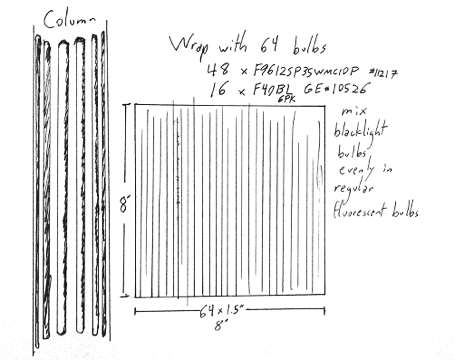 Column
Wrap with 64 bulbs
48 x F9612SP35WMCIOP #11217
16 x F40BL GE#10526
6PK
mix
blacklight
bulbs
evenly in
regular
fluorescent bulbs
8"
64 x 1.5"
8"